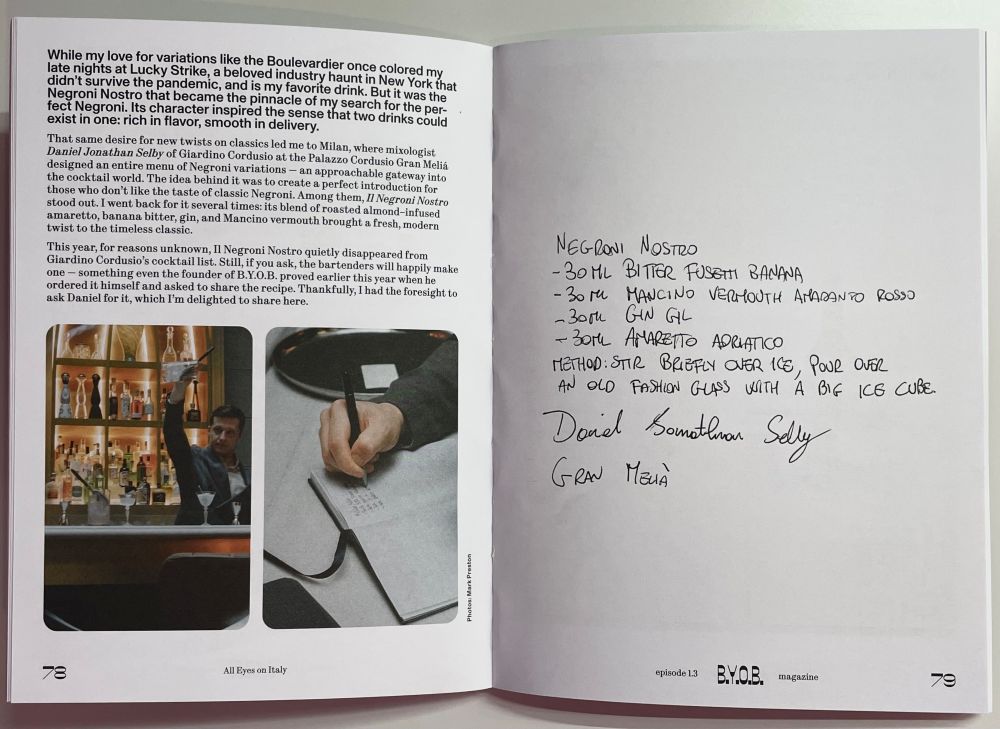 While my love for variations like the Boulevardier once colored my
late nights at Lucky Strike, a beloved industry haunt in New York that
didn't survive the pandemic, and is my favorite drink. But it was the
Negroni Nostro that became the pinnacle of my search for the per-
fect Negroni. Its character inspired the sense that two drinks could
exist in one: rich in flavor, smooth in delivery.
That same desire for new twists on classics led me to Milan, where mixologist
Daniel Jonathan Selby of Giardino Cordusio at the Palazzo Cordusio Gran Meliá
designed an entire menu of Negroni variations — an approachable gateway into
the cocktail world. The idea behind it was to create a perfect introduction for
those who don't like the taste of classic Negroni. Among them, Il Negroni Nostro
stood out. I went back for it several times: its blend of roasted almond–infused
amaretto, banana bitter, gin, and Mancino vermouth brought a fresh, modern
twist to the timeless classic.
This year, for reasons unknown, Il Negroni Nostro quietly disappeared from
Giardino Cordusio's cocktail list. Still, if you ask, the bartenders will happily make
one — something even the founder of B.Y.O.B. proved earlier this year when he
ordered it himself and asked to share the recipe. Thankfully, I had the foresight to
ask Daniel for it, which I'm delighted to share here.
Photos: Mark Preston
78
All Eyes on Italy
NEGRONI NOSTRO
- 30 ML BITTER FUSETTI BANANA
- 30 ML MANCINO VERMOUTH AMARANTO ROSSO
- 30 ML GIN GIL
- 30 ML AMARETTO ADRIATICO
METHOD: STIR BRIEFLY OVER ICE, POUR OVER
AN OLD FASHION GLASS WITH A BIG ICE CUBE.
Daniel Jonathan Selby
GRAN MELIÀ
episode 1.3 B.Y.O.B. magazine
79